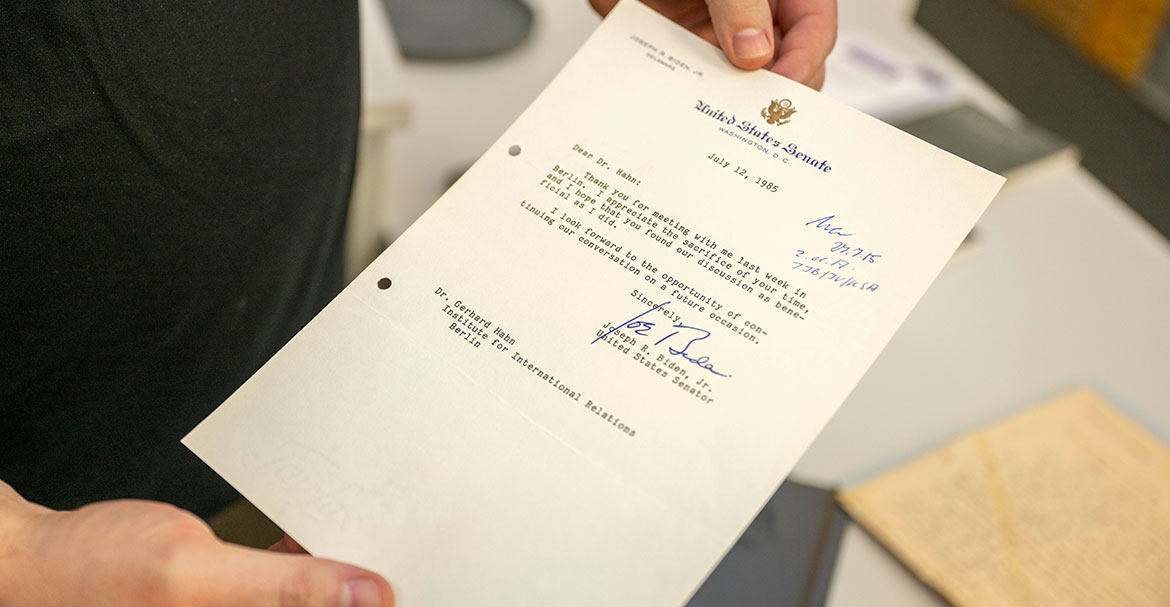 JOSEPH R. BIDEN, JR.
DELAWARE
United States Senate
WASHINGTON, D.C.
July 12, 1985
Dear Dr. Hahn:
Thank you for meeting with me last week in
Berlin. I appreciate the sacrifice of your time,
and I hope that you found our discussion as bene-
ficial as I did.
I look forward to the opportunity of con-
tinuing our conversation on a future occasion.
Sincerely,
Joe Biden
Joseph R. Biden, Jr.
United States Senator
Dr. Gerhard Hahn
Institute for International Relations
Berlin